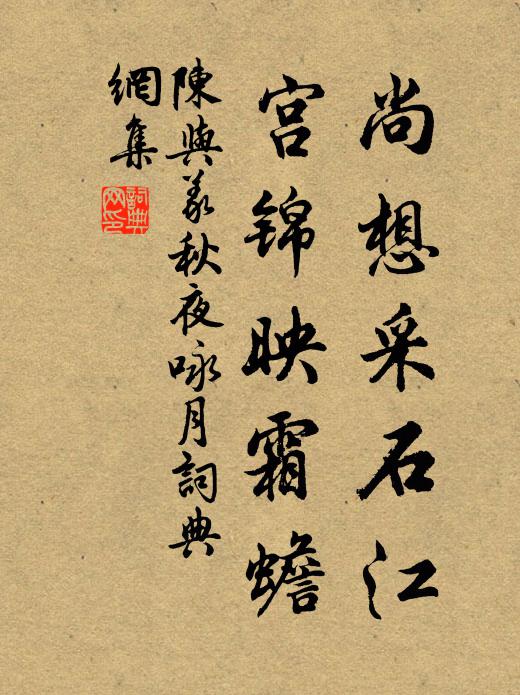 尚想采石江
宫锦映霜蟾
陳與義秋夜咏月詞典
網集
詞典
网印